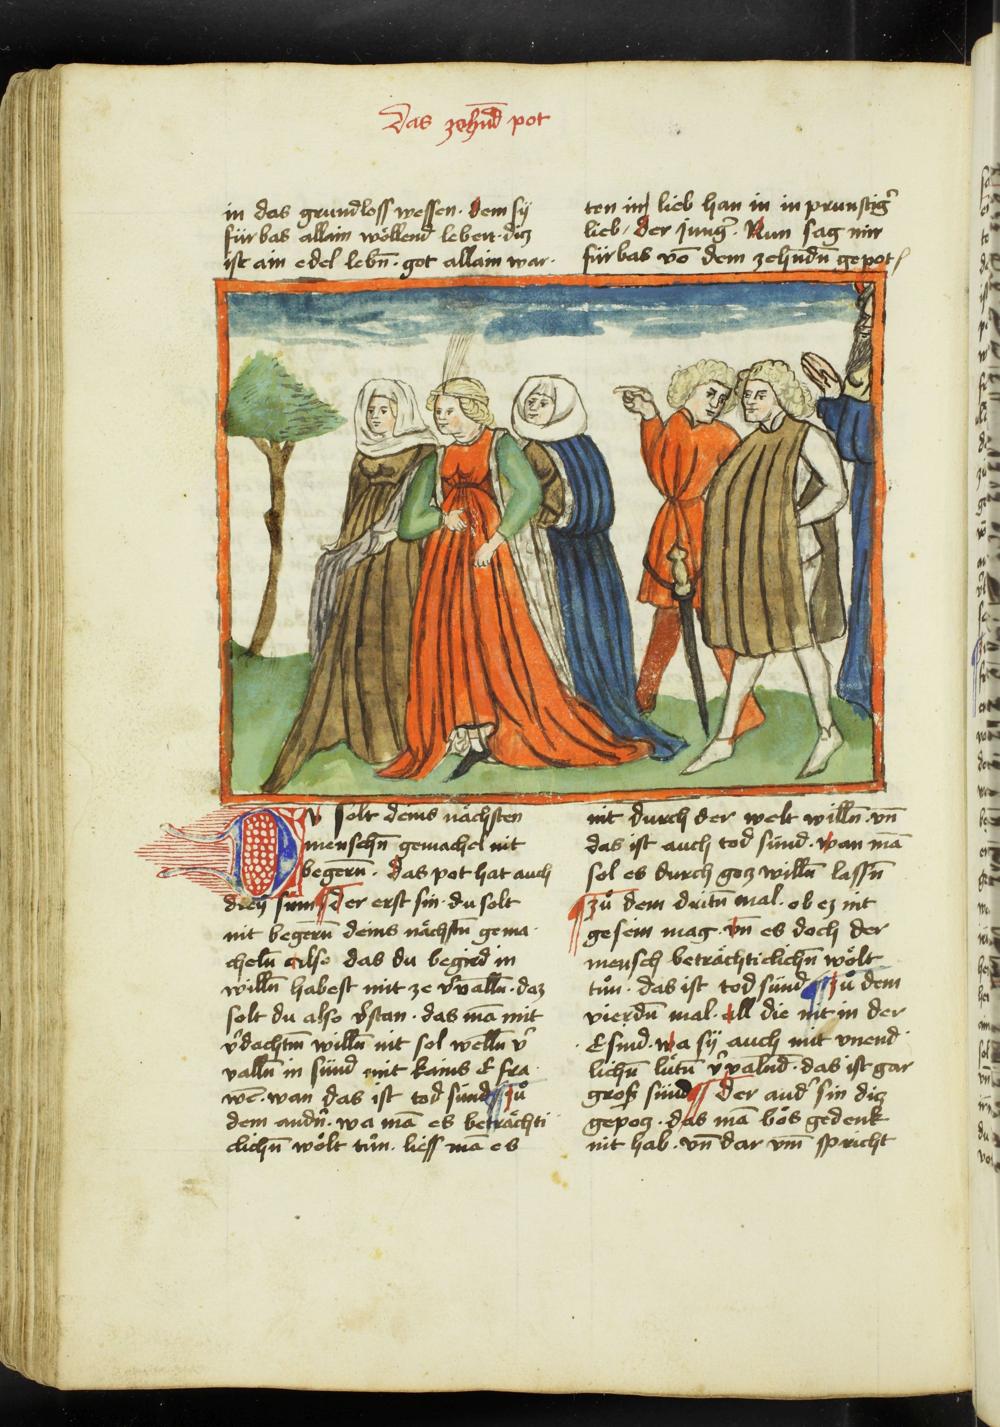 Das zehnd pot
in das grundloss wessen. dem sy
fürbas allain wöllend leben. diz
ist ain edel lebn̄. got allain war.
ten in lieb han in in prunstigr̄
lieb. der jung. Nun sag mir
fürbas vō dem zehndn̄ gepot
DV solt deins nächsten
menschn̄ gemachel nit
begern̄. das pot hat auch
drey sinn der erst sin. du solt
nit begern̄ deins nächstn̄ gema
cheln̄ also das du begird in
willn̄ habest mit ze v̄valln̄. daz
solt du also v̄stan. das mā mit
v̄dachtm̄ willn̄ nit sol welln̄ v̄
valln̄ in sünd mit kains E fra
wē. wan das ist tod sünd zů
dem andn̄. wa mā es beträchti
clichn̄ wölt tůn. liess mā es
nit durch der welt willn̄. vn̄
das ist auch tod sünd. wan mā
sol es durch goz willn̄ lassn̄
zů dem dritn̄ mal. ob ez nit
gesein mag. vn̄ es doch der
mensch beträchticlichn̄ wölt
tůn. das ist tod sünd zů dem
vierdn̄ mal. all die nit in der
E sind. wa sy auch mit vnend
lichn̄ lütn̄ v̄valnd. das ist gar
gross sünd der and̄ sin diz
gepoz. das mā bös gedenk
nit hab. vn̄ dar vm̄ spricht